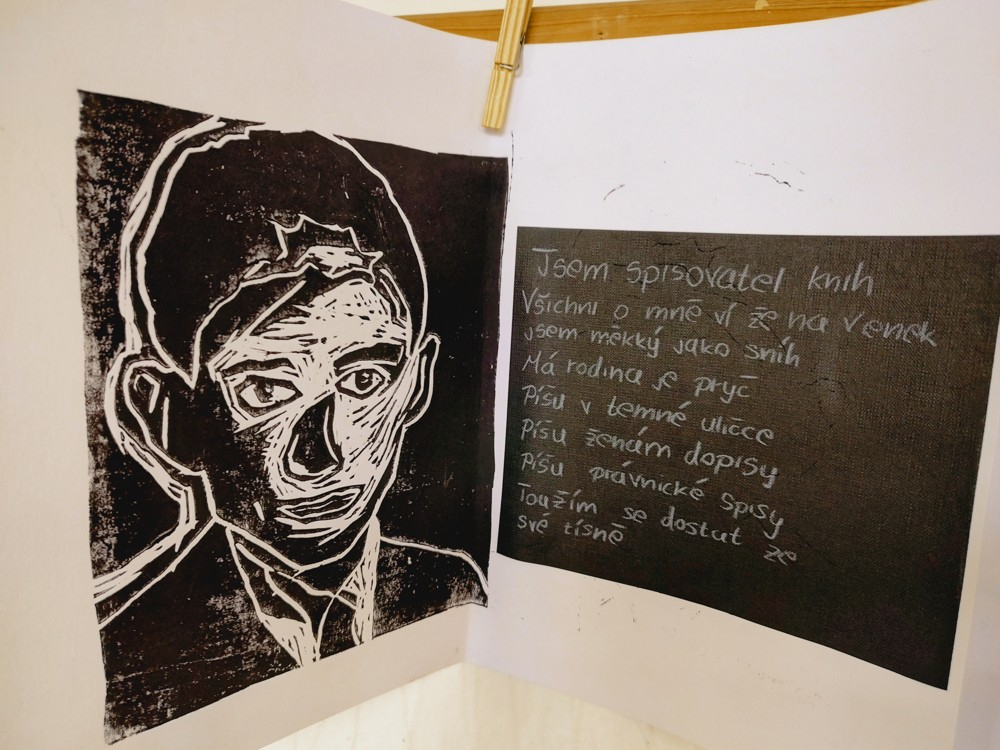 Jsem spisovatel knih
Všichni o mně ví že na venek
jsem měkký jako sníh
Má rodina je pryč
Píšu v temné uličce
Píšu ženám dopisy
Píšu právnické spisy
Toužím se dostat ze
své tísně